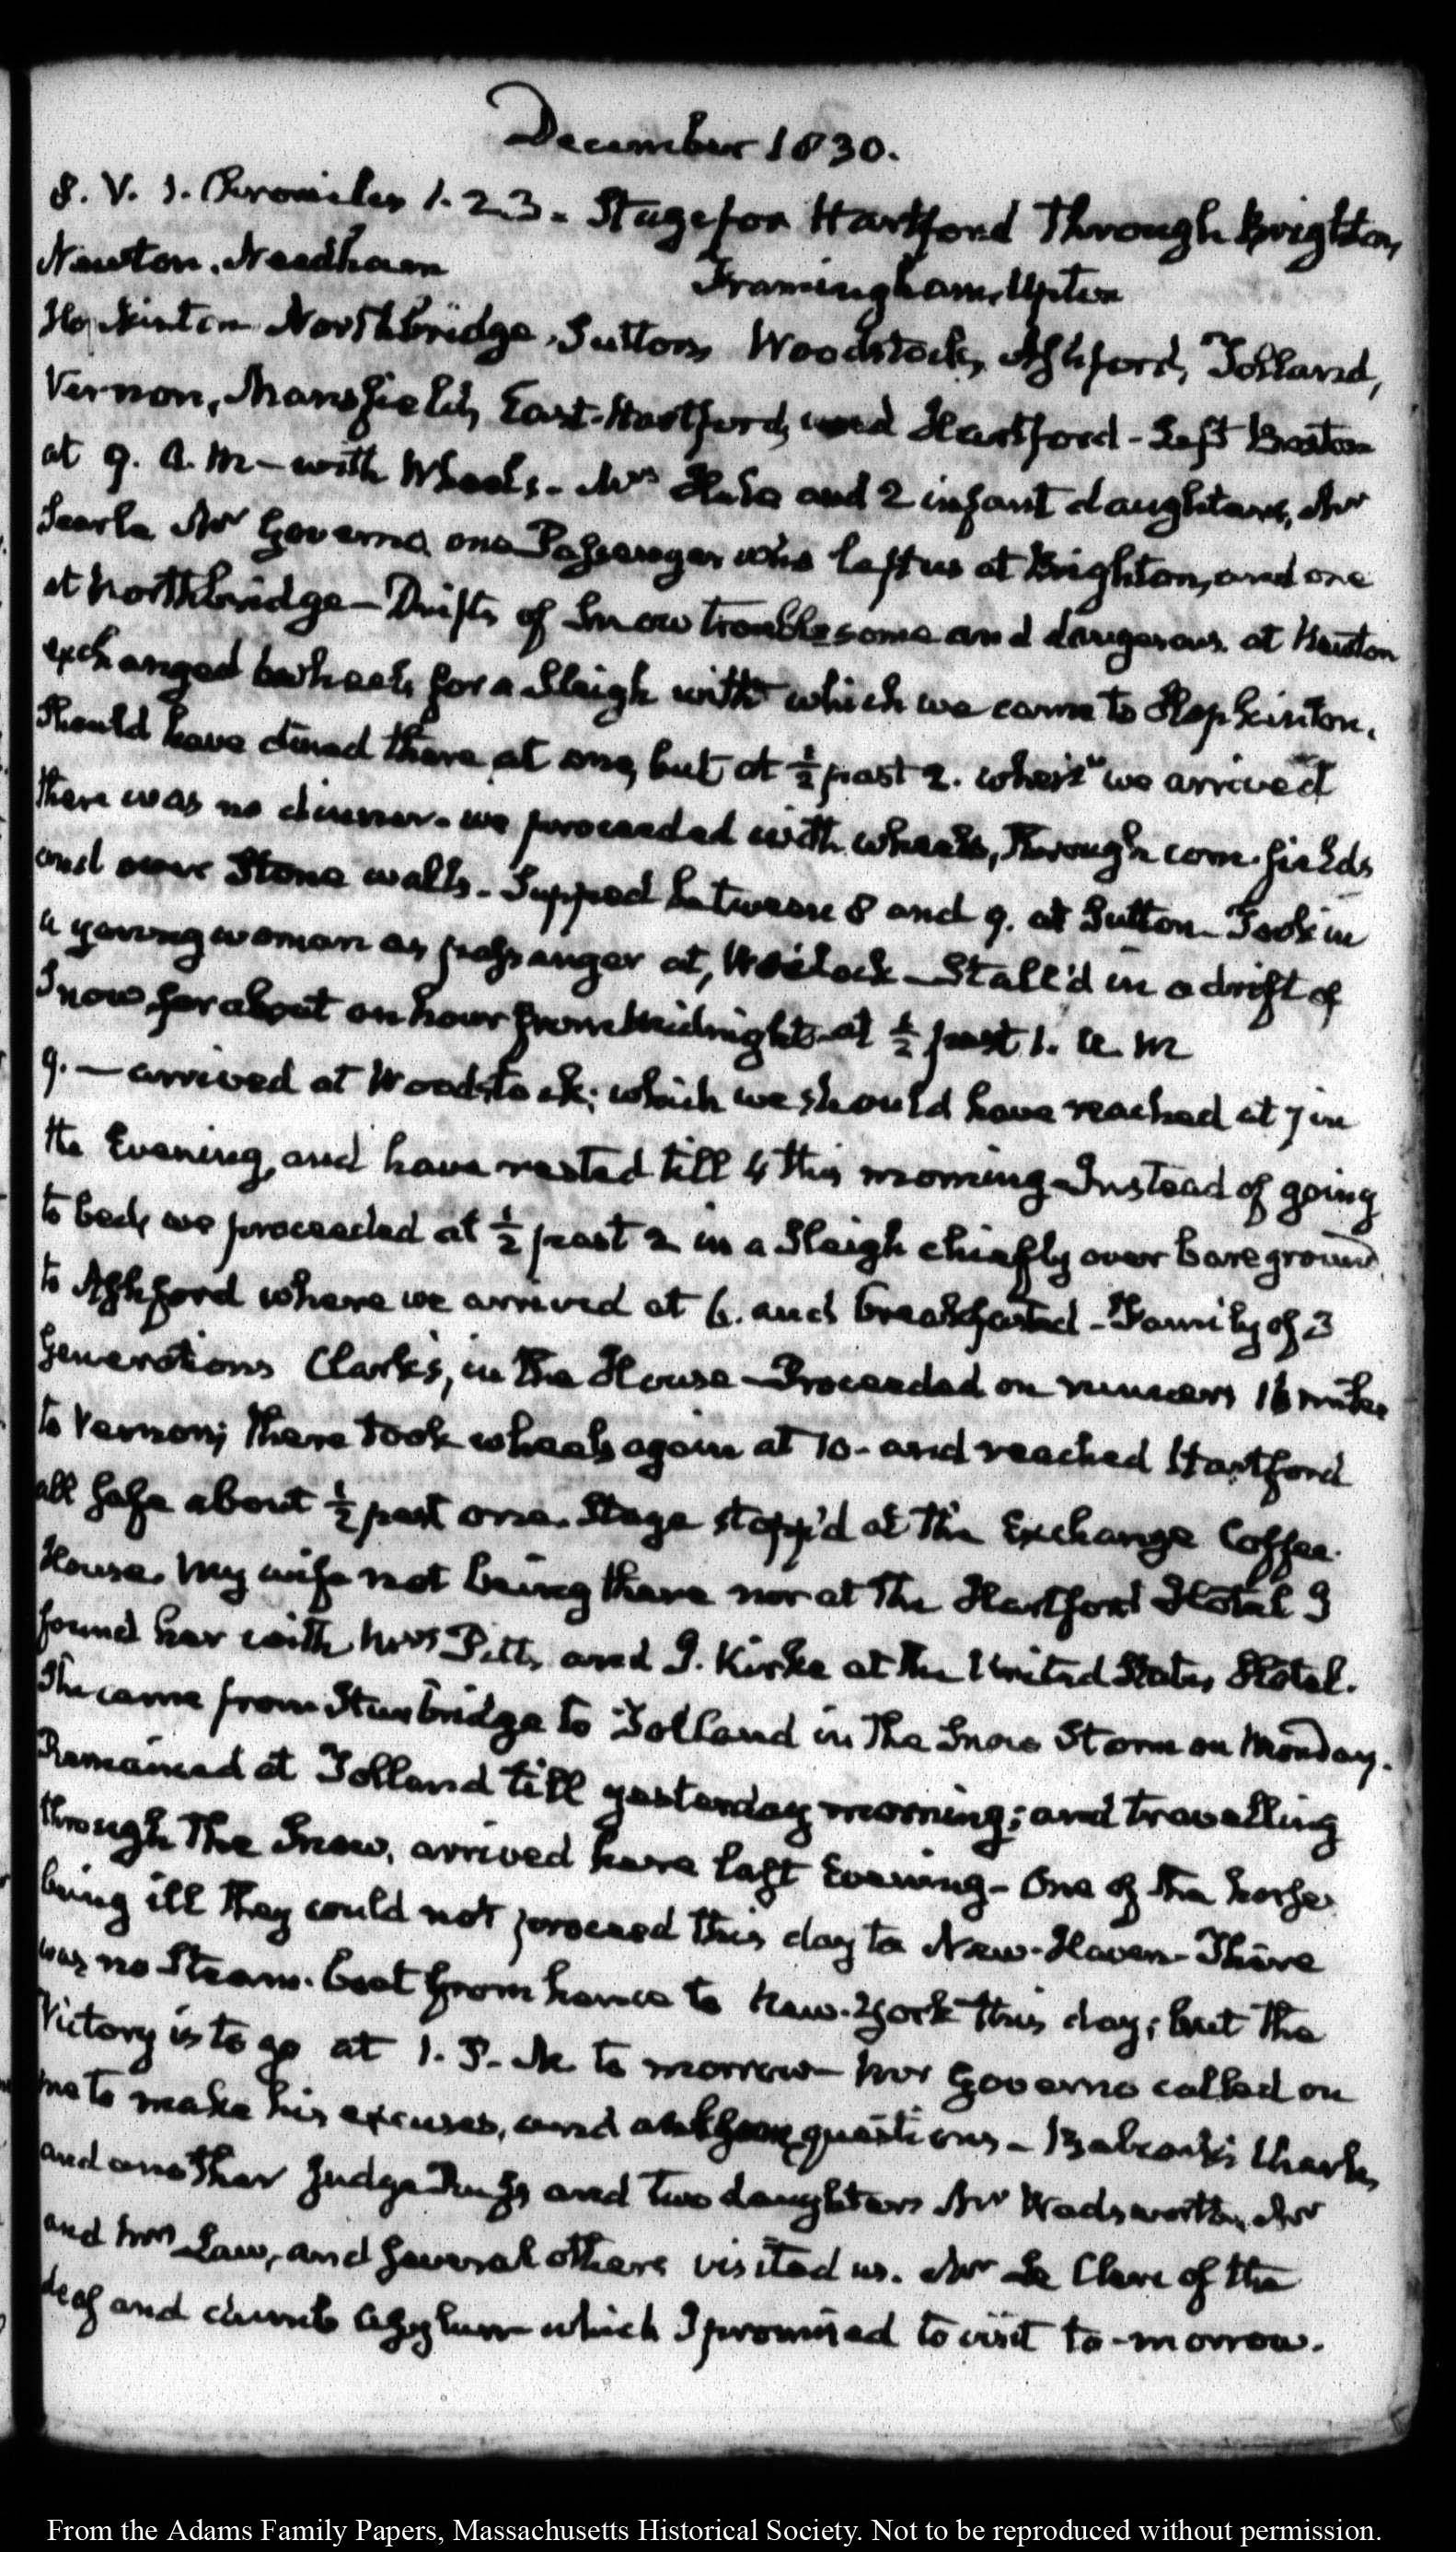 December 1830.
8. V. 1. Chronicles 1. 2. 3. Stage for Hartford Through Brighton,
Newton, Needham Framingham, Upton
Hopkinton Northbridge, Sutton, Woodstock, Ashford, Tolland,
Vernon, Mansfield, East-Hartford, and Hartford - Left Boston
at 9. A.M - with Wheels - Mrs Hale and 2 infant daughters, Mr
Searle Mr Governo one Passenger who left us at Brighton, and one
at Northbridge - Drifts of Snow troublesome and dangerous at Newton
exchanged wheels for a Sleigh with which we came to Hopkinton.
Should have dined there at one, but at ½ past 2. when we arrived
there was no dinner - we proceeded with wheels, through corn-fields
and over Stone walls - Supped between 8 and 9. at Sutton - Took in
a young woman as passenger at, - Stall'd in a drift of
Snow for about an hour from Midnight at ½ past 1. A. M
9. - arrived at Woodstock; which we should have reached at 7 in
the Evening, and have rested till 4 this morning - Instead of going
to bed, we proceeded at ½ past 2 in a Sleigh chiefly over bare ground
to Ashford where we arrived at 6. and breakfasted - Family of 3
Generations Clark's, in the House - Proceeded on runners 16 miles
to Vernon; there took wheels again at 10 - and reached Hartford
all safe about ½ past one. Stage stopp'd at the Exchange Coffee-
House. My wife not being there nor at the Hartford Hotel I
found her with Mrs Pitts, and J. Kirke at the United States Hotel.
She came from Sturbridge to Tolland in the Snow Storm on Monday.
Remained at Tolland till yesterday morning; and travelling
through the Snow, arrived here last Evening - One of the horses
being ill they could not proceed this day to New-Haven - There
was no Steam-boat from hence to New-York this day; but the
Victory is to go at 1. P. M. to morrow - Mr Governo called on
me to make his excuses, and ask some questions - Charles
and another Judge and two daughters Mr Wadsworth, Mr
and Mrs Law, and several others visited us. Mr Le Clerc of the
deaf and dumb Asylum which I promised to visit to-morrow.
From the Adams Family Papers, Massachusetts Historical Society. Not to be reproduced without permission.